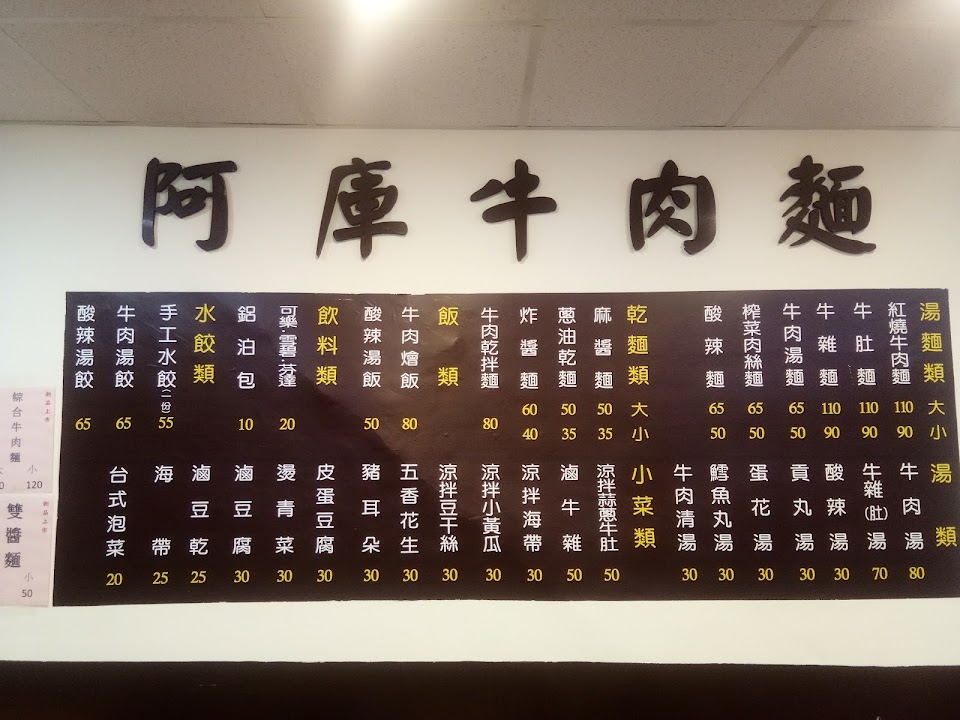 阿庫牛肉麵
湯麵類 大 小
紅燒牛肉麵 110 90
牛肚麵 110 90
牛雜麵 110 90
牛肉湯麵 65 50
榨菜肉絲麵 65 50
酸辣麵 65 50
乾麵類 大 小
麻醬麵 50 35
蔥油乾麵 50 35
炸醬麵 60 40
牛肉乾拌麵 80
飯類
牛肉燴飯 80
酸辣湯飯 50
飲料類
可樂.雪碧.芬達 20
鋁泊包 10
水餃類
手工水餃(一份) 55
牛肉湯餃 65
酸辣湯餃 65
湯類
牛肉湯 80
牛雜(肚)湯 70
酸辣湯 30
貢丸湯 30
蛋花湯 30
鱈魚丸湯 30
牛肉清湯 30
小菜類
涼拌蒜蔥牛肚 50
滷牛雜 50
涼拌海帶 30
涼拌小黃瓜 30
涼拌豆干絲 30
五香花生 30
豬耳朵 30
皮蛋豆腐 30
燙青菜 30
滷豆腐 30
滷豆乾 25
海帶 25
台式泡菜 20
新品上市
綜合牛肉麵
小 120
新品上市
雙醬麵
小 50